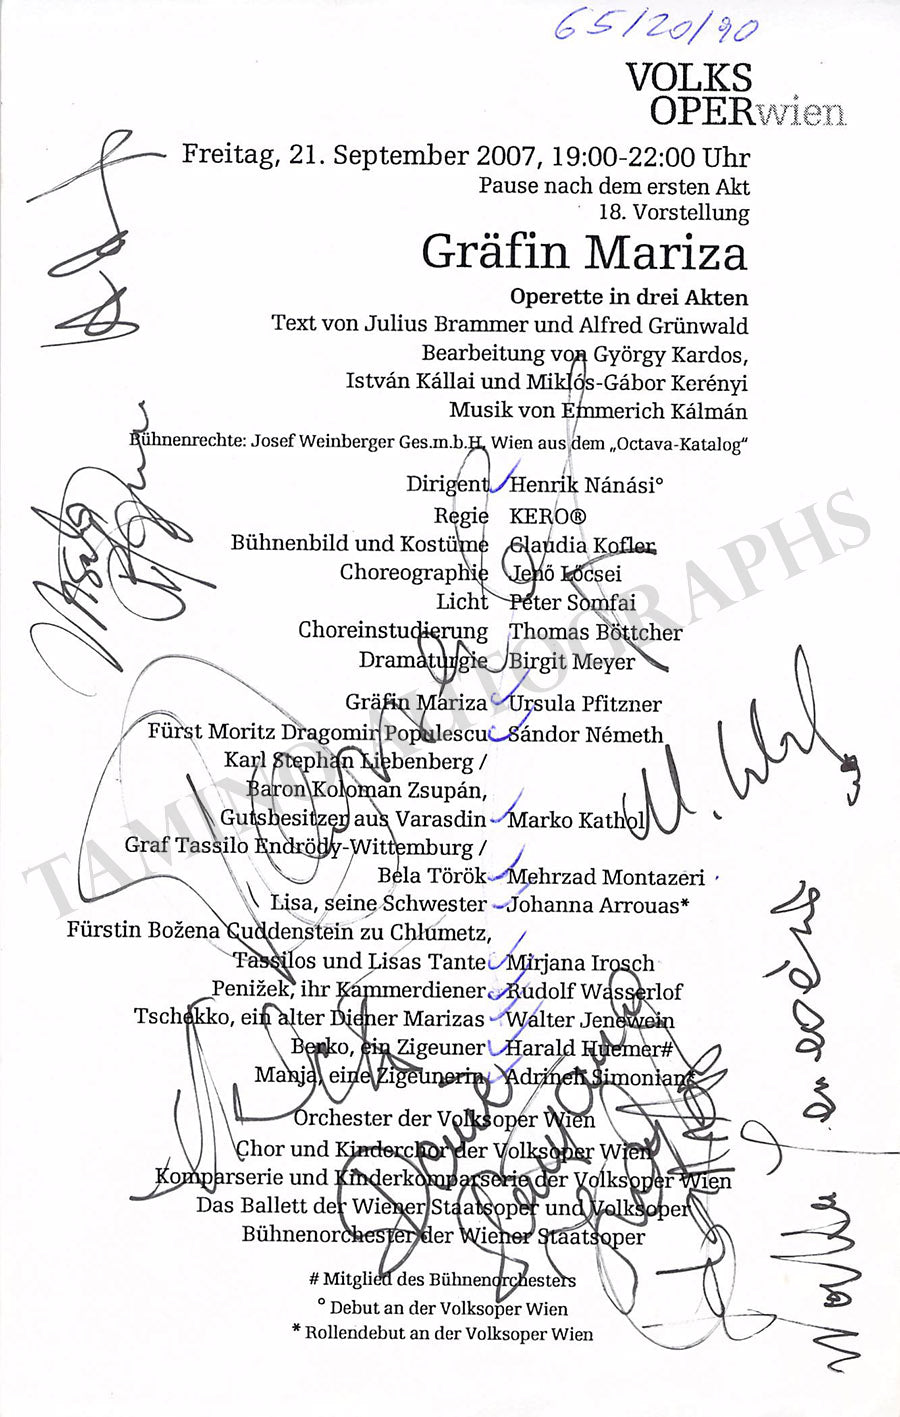 65/20/90
VOLKS
OPERwien
Freitag, 21. September 2007, 19:00-22:00 Uhr
Pause nach dem ersten Akt
18. Vorstellung
Gräfin Mariza
Operette in drei Akten
Text von Julius Brammer und Alfred Grünwald
Bearbeitung von György Kardos,
István Kállai und Miklós-Gábor Kerényi
Musik von Emmerich Kálmán
Bühnenrechte: Josef Weinberger Ges.m.b.H, Wien aus dem „Octava-Katalog“
Dirigent Henrik Nánási°
Regie KERO®
Bühnenbild und Kostüme Claudia Kofler
Choreographie Jenő Löcsei
Licht Péter Somfai
Choreinstudierung Thomas Böttcher
Dramaturgie Birgit Meyer
Gräfin Mariza Ursula Pfitzner
Fürst Moritz Dragomir Populescu Sándor Németh
Karl Stephan Liebenberg /
Baron Koloman Zsupán,
Gutsbesitzer aus Varasdin Marko Kathol
Graf Tassilo Endrödy-Wittemburg /
Béla Török Mehrzad Montazeri
Lisa, seine Schwester Johanna Arrouas*
Fürstin Božena Cuddenstein zu Chlumetz,
Tassilos und Lisas Tante Mirjana Irosch
Penižek, ihr Kammerdiener Rudolf Wasserlof
Tschekko, ein alter Diener Marizas Walter Jenewein
Berko, ein Zigeuner Harald Huemer#
Manja, eine Zigeunerin Adrineh Simonian*
Orchester der Volksoper Wien
Chor und Kinderchor der Volksoper Wien
Komparserie und Kinderkomparserie der Volksoper Wien
Das Ballett der Wiener Staatsoper und Volksoper
Bühnenorchester der Wiener Staatsoper
# Mitglied des Bühnenorchesters
° Debut an der Volksoper Wien
* Rollendebut an der Volksoper Wien
TAMINO AUTOGRAPHS